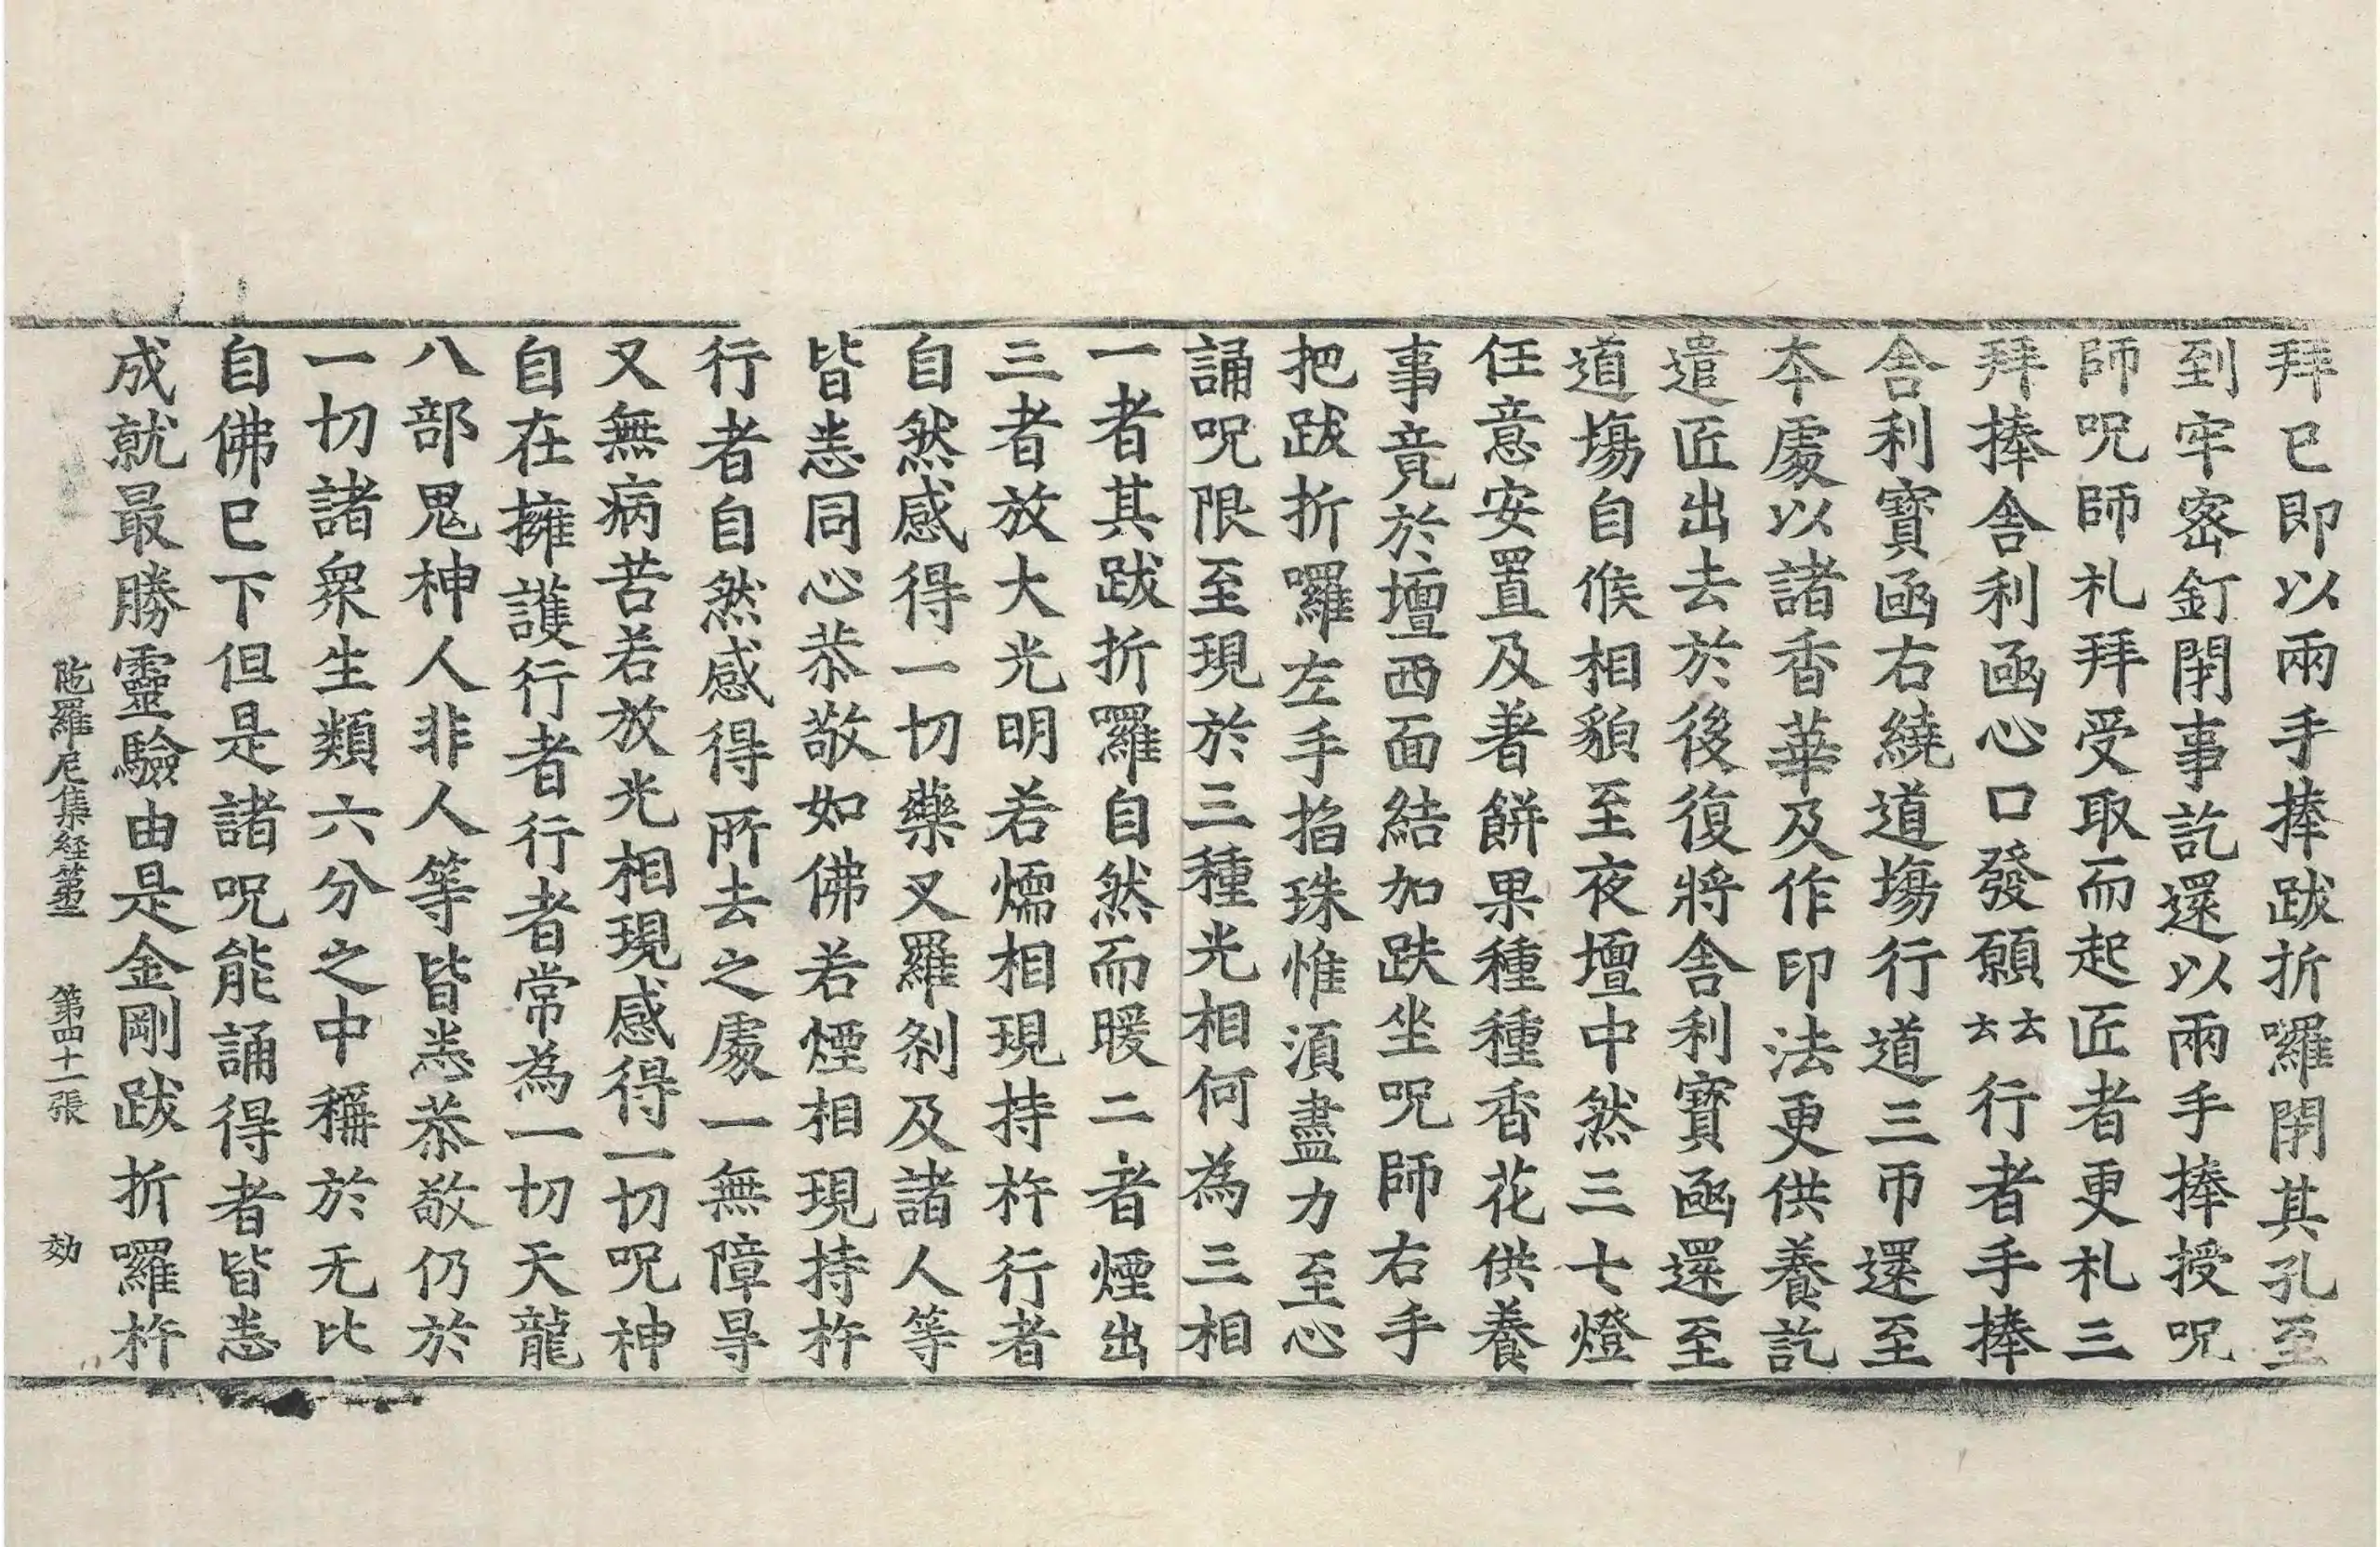 拜已即以兩手捧跋折囉閇其孔至
到牢密釘閇事訖還以兩手捧授呪
師呪師礼拜受取而起匠者更礼三
拜捧舎利函心口發願云云行者手捧
舎利寶函右繞道塲行道三帀還至
本處以諸香華及作印法更供養訖
遣匠出去於後復將舎利寶函還至
道塲自候相貌至夜壇中然三七燈
任意安置及著餅果種種香花供養
事竟於壇西面結加趺坐呪師右手
把跋折囉左手掐珠惟湏盡力至心
誦呪限至現於三種光相何為三相
一者其跋折囉自然而暖二者煙出
三者放大光明若煗相現持杵行者
自然感得一切藥叉羅刹及諸人等
皆悉同心恭敬如佛若煙相現持杵
行者自然感得所去之處一無障㝵
又無病苦若放光相現感得一切呪神
自在擁護行者行者常為一切天龍
八部鬼神人非人等皆悉恭敬仍於
一切諸衆生類六分之中稱於无比
自佛已下但是諸呪能誦得者皆悉
成就最勝靈驗由是金剛跋折囉杵
陁羅尼集経第二 第四十一張 効